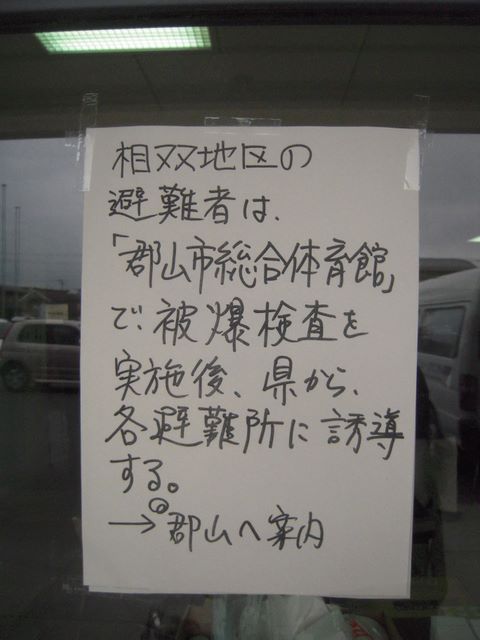 相双地区の
避難者は、
「郡山市総合体育館」
で、被爆検査を
実施後、県から、
各避難所に誘導
する。
→郡山へ案内